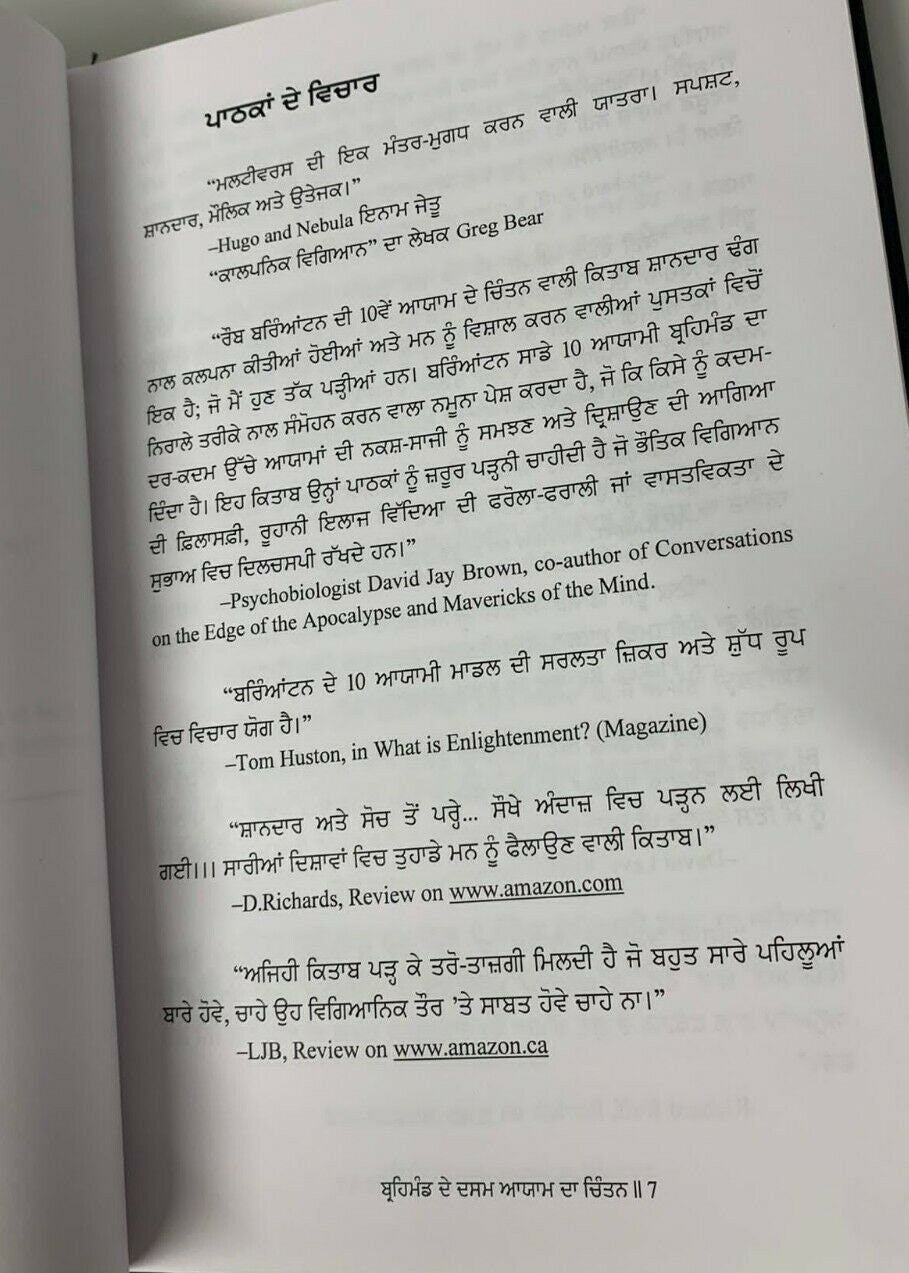 ਪਾਠਕਾਂ ਦੇ ਵਿਚਾਰ
“ਮਲਟੀਵਰਸ ਦੀ ਇਕ ਮੰਤਰ-ਮੁਗਧ ਕਰਨ ਵਾਲੀ ਯਾਤਰਾ। ਸਪਸ਼ਟ,
ਸ਼ਾਨਦਾਰ, ਮੌਲਿਕ ਅਤੇ ਉਤੇਜਕ।”
–Hugo and Nebula ਇਨਾਮ ਜੇਤੂ
“ਕਾਲਪਨਿਕ ਵਿਗਿਆਨ” ਦਾ ਲੇਖਕ Greg Bear
“ਰੌਬ ਬਰਿੰਆਂਟਨ ਦੀ 10ਵੇਂ ਆਯਾਮ ਦੇ ਚਿੰਤਨ ਵਾਲੀ ਕਿਤਾਬ ਸ਼ਾਨਦਾਰ ਢੰਗ
ਨਾਲ ਕਲਪਨਾ ਕੀਤੀਆਂ ਹੋਈਆਂ ਅਤੇ ਮਨ ਨੂੰ ਵਿਸ਼ਾਲ ਕਰਨ ਵਾਲੀਆਂ ਪੁਸਤਕਾਂ ਵਿਚੋਂ
ਇਕ ਹੈ; ਜੋ ਮੈਂ ਹੁਣ ਤੱਕ ਪੜ੍ਹੀਆਂ ਹਨ। ਬਰਿੰਆਂਟਨ ਸਾਡੇ 10 ਆਯਾਮੀ ਬ੍ਰਹਿਮੰਡ ਦਾ
ਨਿਰਾਲੇ ਤਰੀਕੇ ਨਾਲ ਸੰਮੋਹਨ ਕਰਨ ਵਾਲਾ ਨਮੂਨਾ ਪੇਸ਼ ਕਰਦਾ ਹੈ, ਜੋ ਕਿ ਕਿਸੇ ਨੂੰ ਕਦਮ-
ਦਰ-ਕਦਮ ਉੱਚੇ ਆਯਾਮਾਂ ਦੀ ਨਕਸ਼-ਸਾਜੀ ਨੂੰ ਸਮਝਣ ਅਤੇ ਦ੍ਰਿਸ਼ਾਉਣ ਦੀ ਆਗਿਆ
ਦਿੰਦਾ ਹੈ। ਇਹ ਕਿਤਾਬ ਉਨ੍ਹਾਂ ਪਾਠਕਾਂ ਨੂੰ ਜ਼ਰੂਰ ਪੜ੍ਹਨੀ ਚਾਹੀਦੀ ਹੈ ਜੋ ਭੌਤਿਕ ਵਿਗਿਆਨ
ਦੀ ਫ਼ਿਲਾਸਫ਼ੀ, ਰੂਹਾਨੀ ਇਲਾਜ ਵਿੱਦਿਆ ਦੀ ਫਰੋਲਾ-ਫਰਾਲੀ ਜਾਂ ਵਾਸਤਵਿਕਤਾ ਦੇ
ਸੁਭਾਅ ਵਿਚ ਦਿਲਚਸਪੀ ਰੱਖਦੇ ਹਨ।”
–Psychobiologist David Jay Brown, co-author of Conversations
on the Edge of the Apocalypse and Mavericks of the Mind.
“ਬਰਿੰਆਂਟਨ ਦੇ 10 ਆਯਾਮੀ ਮਾਡਲ ਦੀ ਸਰਲਤਾ ਜ਼ਿਕਰ ਅਤੇ ਸ਼ੁੱਧ ਰੂਪ
ਵਿਚ ਵਿਚਾਰ ਯੋਗ ਹੈ।”
–Tom Huston, in What is Enlightenment? (Magazine)
“ਸ਼ਾਨਦਾਰ ਅਤੇ ਸੋਚ ਤੋਂ ਪਰ੍ਹੇ... ਸੌਖੇ ਅੰਦਾਜ਼ ਵਿਚ ਪੜ੍ਹਨ ਲਈ ਲਿਖੀ
ਗਈ।।। ਸਾਰੀਆਂ ਦਿਸ਼ਾਵਾਂ ਵਿਚ ਤੁਹਾਡੇ ਮਨ ਨੂੰ ਫੈਲਾਉਣ ਵਾਲੀ ਕਿਤਾਬ।”
–D.Richards, Review on www.amazon.com
“ਅਜਿਹੀ ਕਿਤਾਬ ਪੜ੍ਹ ਕੇ ਤਰੋ-ਤਾਜ਼ਗੀ ਮਿਲਦੀ ਹੈ ਜੋ ਬਹੁਤ ਸਾਰੇ ਪਹਿਲੂਆਂ
ਬਾਰੇ ਹੋਵੇ, ਚਾਹੇ ਉਹ ਵਿਗਿਆਨਿਕ ਤੌਰ ’ਤੇ ਸਾਬਤ ਹੋਵੇ ਚਾਹੇ ਨਾ।”
–LJB, Review on www.amazon.ca
ਬ੍ਰਹਿਮੰਡ ਦੇ ਦਸਮ ਆਯਾਮ ਦਾ ਚਿੰਤਨ || 7